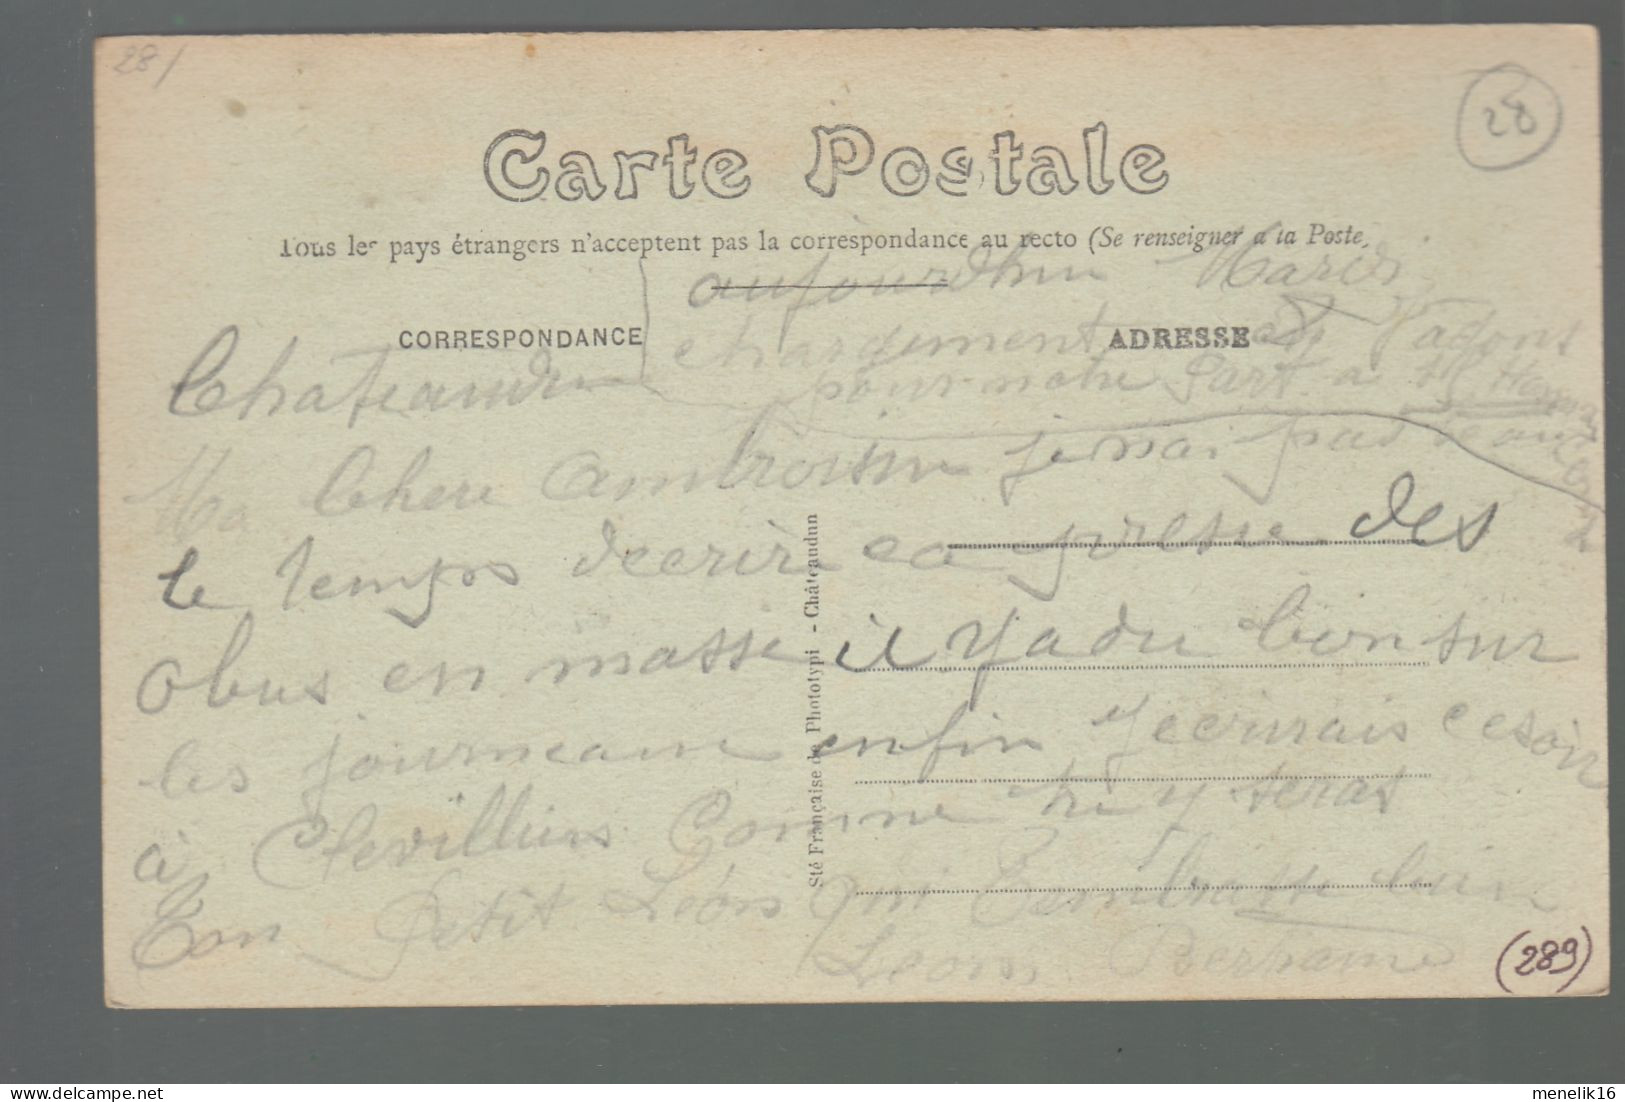 28/
28
Carte Postale
Tous les pays étrangers n'acceptent pas la correspondance au recto (Se renseigner a la Poste,
aujourdhui Mardi
CORRESPONDANCE
ADRESSE
chargement
pour notre Part a
Chateaudun
Ma Chere Ambroisine je nai pas
le temps decrire ca presse des
obus en masse il Y a du bon sur
les journeaux enfin J ecrirais ce soir
à Clevilliers Comme tu y seras
Ton Petit Léon Qui Tembrasse bien
Leon Bertrame
Sté Française de Phototypi - Châteaudun
(289)
www.delcampe.net
menelik16